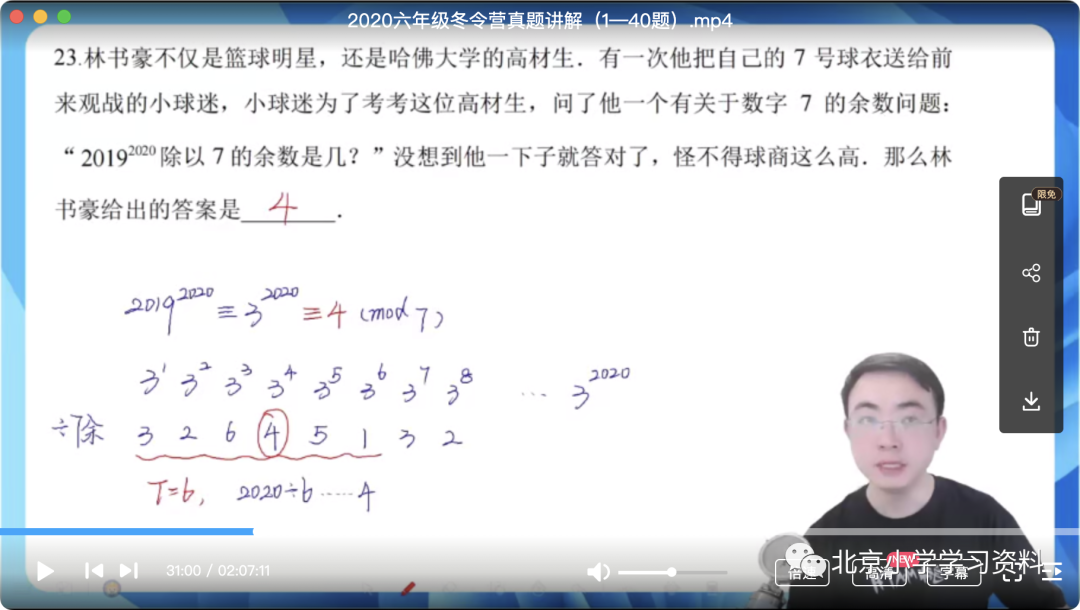 2020六年级冬令营真题讲解（1—40题）.mp4
23.林书豪不仅是篮球明星，还是哈佛大学的高材生．有一次他把自己的 7 号球衣送给前
来观战的小球迷，小球迷为了考考这位高材生，问了他一个有关于数字 7 的余数问题：
“2019²⁰²⁰除以 7 的余数是几？”没想到他一下子就答对了，怪不得球商这么高．那么林
书豪给出的答案是 4 ．
限免
2019²⁰²⁰≡3²⁰²⁰≡4 (mod 7)
3¹ 3² 3³ 3⁴ 3⁵ 3⁶ 3⁷ 3⁸ … 3²⁰²⁰
÷7余 3 2 6 4 5 1 3 2
T=6, 2020÷6……4
31:00 / 02:07:11
北京小学学习资料
NEW
倍速 高清 字幕